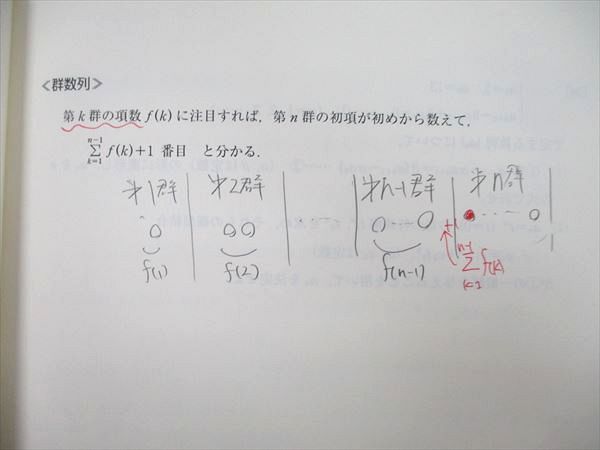 <群数列>
第k群の項数f(k)に注目すれば，第n群の初項が初めから数えて，
\sum_{k=1}^{n-1} f(k)+1 番目 と分かる．
才1群 | 才2群 | | 才n-1群 | 才n群
○ | ○○ | --- | ○--○ | ●----○
f(1) f(2) f(n-1)
+1
\sum^{n-1} f(k)